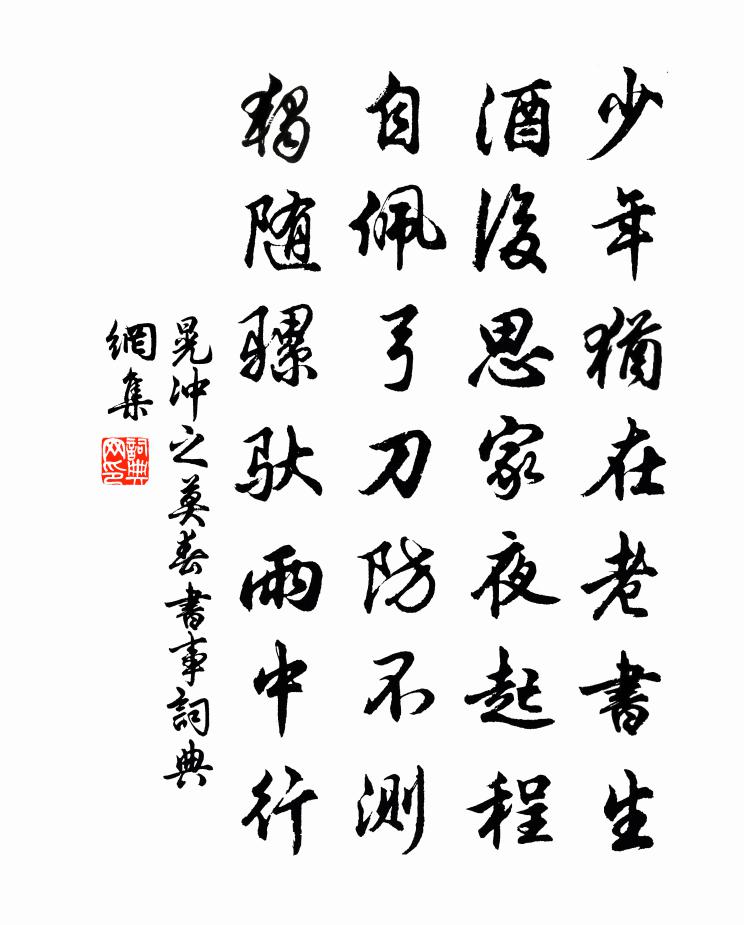 少年猶在老書生
酒後思家夜起程
自佩弓刀防不測
獨随骡馱雨中行
晁冲之莫春書事詞典
網集
詞典網印